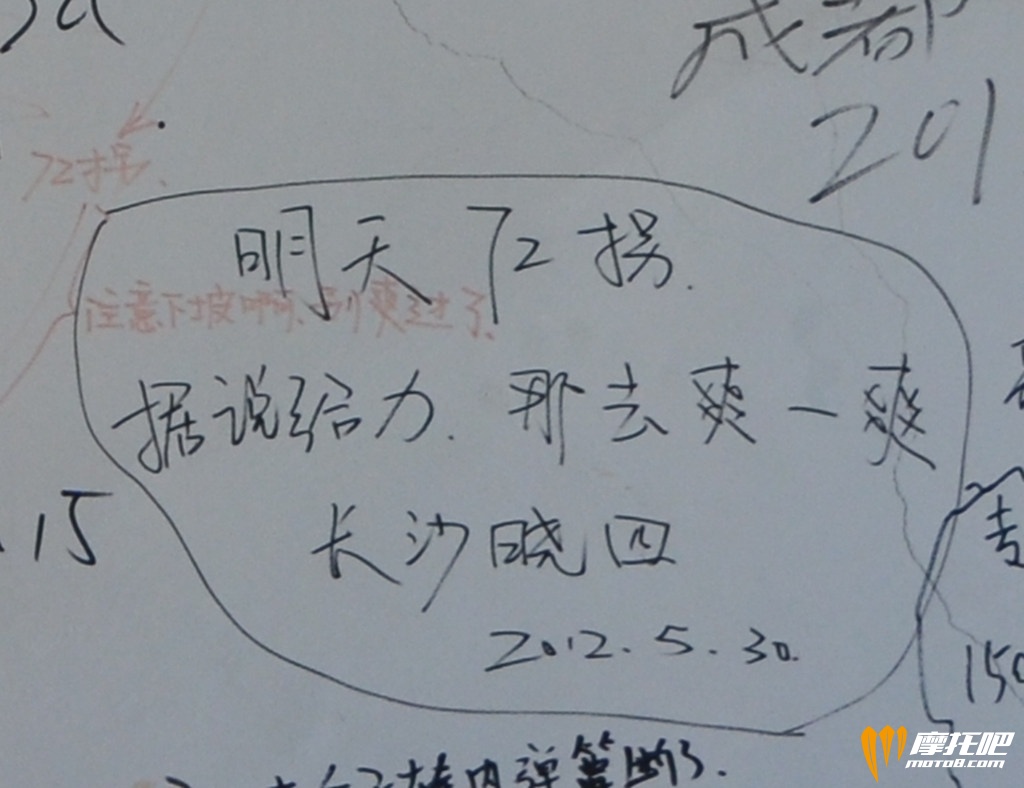 成都
201
72拐、
明天72拐.
注意下坡啊、别爽过了、
据说给力.那去爽一爽
15
长沙晓四
2012.5.30.
150
内弹簧断了.
摩托吧
moto8.com